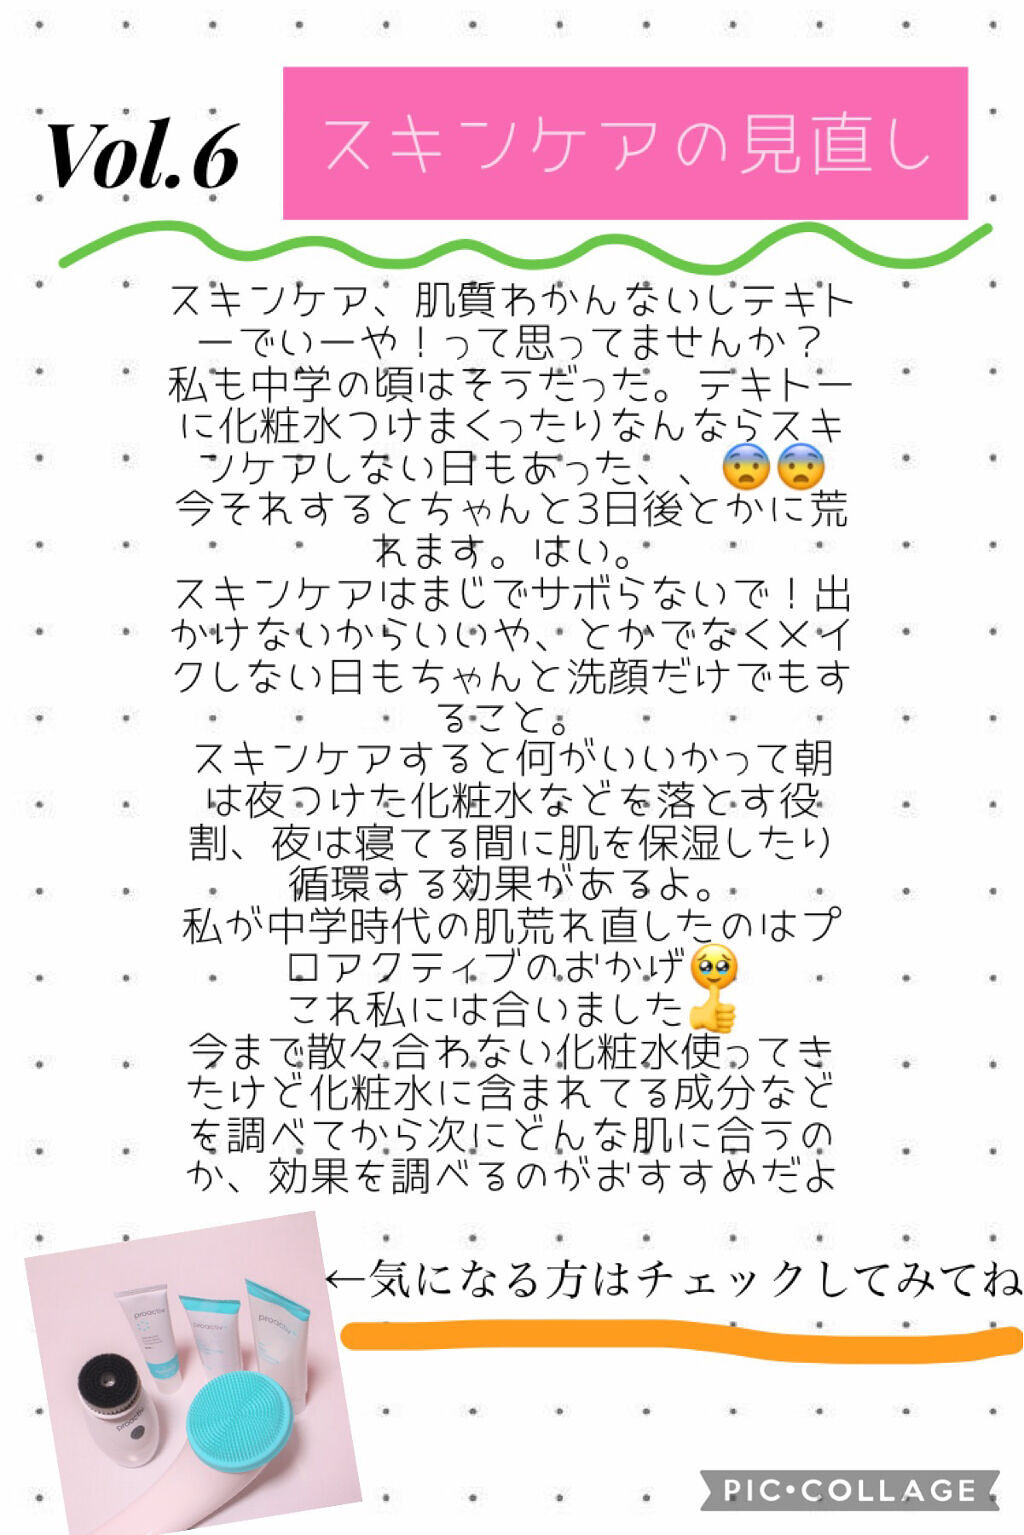 Vol.6
スキンケアの見直し
スキンケア、肌質わかんないしテキト
ーでいーや！って思ってませんか？
私も中学の頃はそうだった。テキトー
に化粧水つけまくったりなんならスキ
ンケアしない日もあった、、😨😨
今それするとちゃんと3日後とかに荒
れます。はい。
スキンケアはまじでサボらないで！出
かけないからいいや、とかでなくメイ
クしない日もちゃんと洗顔だけでもす
ること。
スキンケアすると何がいいかって朝
は夜つけた化粧水などを落とす役
割、夜は寝てる間に肌を保湿したり
循環する効果があるよ。
私が中学時代の肌荒れ直したのはプ
ロアクティブのおかげ🥹
これ私には合いました👍
今まで散々合わない化粧水使ってき
たけど化粧水に含まれてる成分など
を調べてから次にどんな肌に合うの
か、効果を調べるのがおすすめだよ
←気になる方はチェックしてみてね
proactiv
proactiv
proactiv
proactiv
PIC•COLLAGE